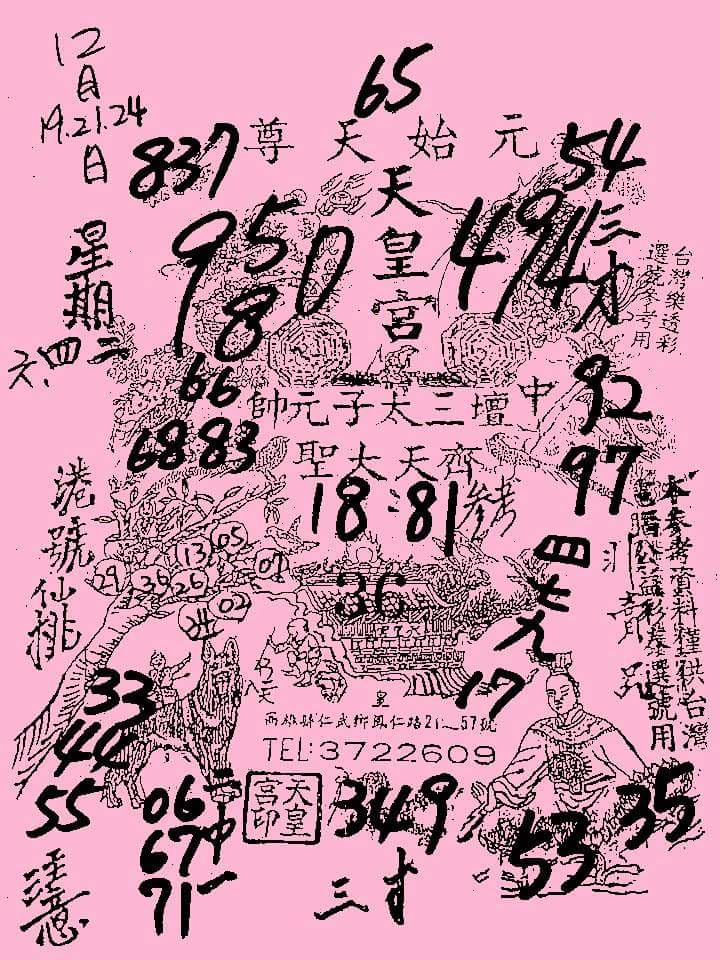 12
月
19.21.24
日
星期
六、四、二
65
837
元始天尊
54
天皇宮
95
8
0
494
三才
台灣樂透彩
選號參考用
66
68 83
中壇三太子元帥
92
齊天大聖
97
18:81
參考
港號仙排
13 05
29 36 26 07
24 02
36
四
七
九
本參考資料僅供台灣
公益彩券選號用
33
44
55
17
皇
高雄縣仁武鄉鳳仁路21~57號
TEL:3722609
06
67
71
二中一
天皇
宮印
349
三才
53
35
注意